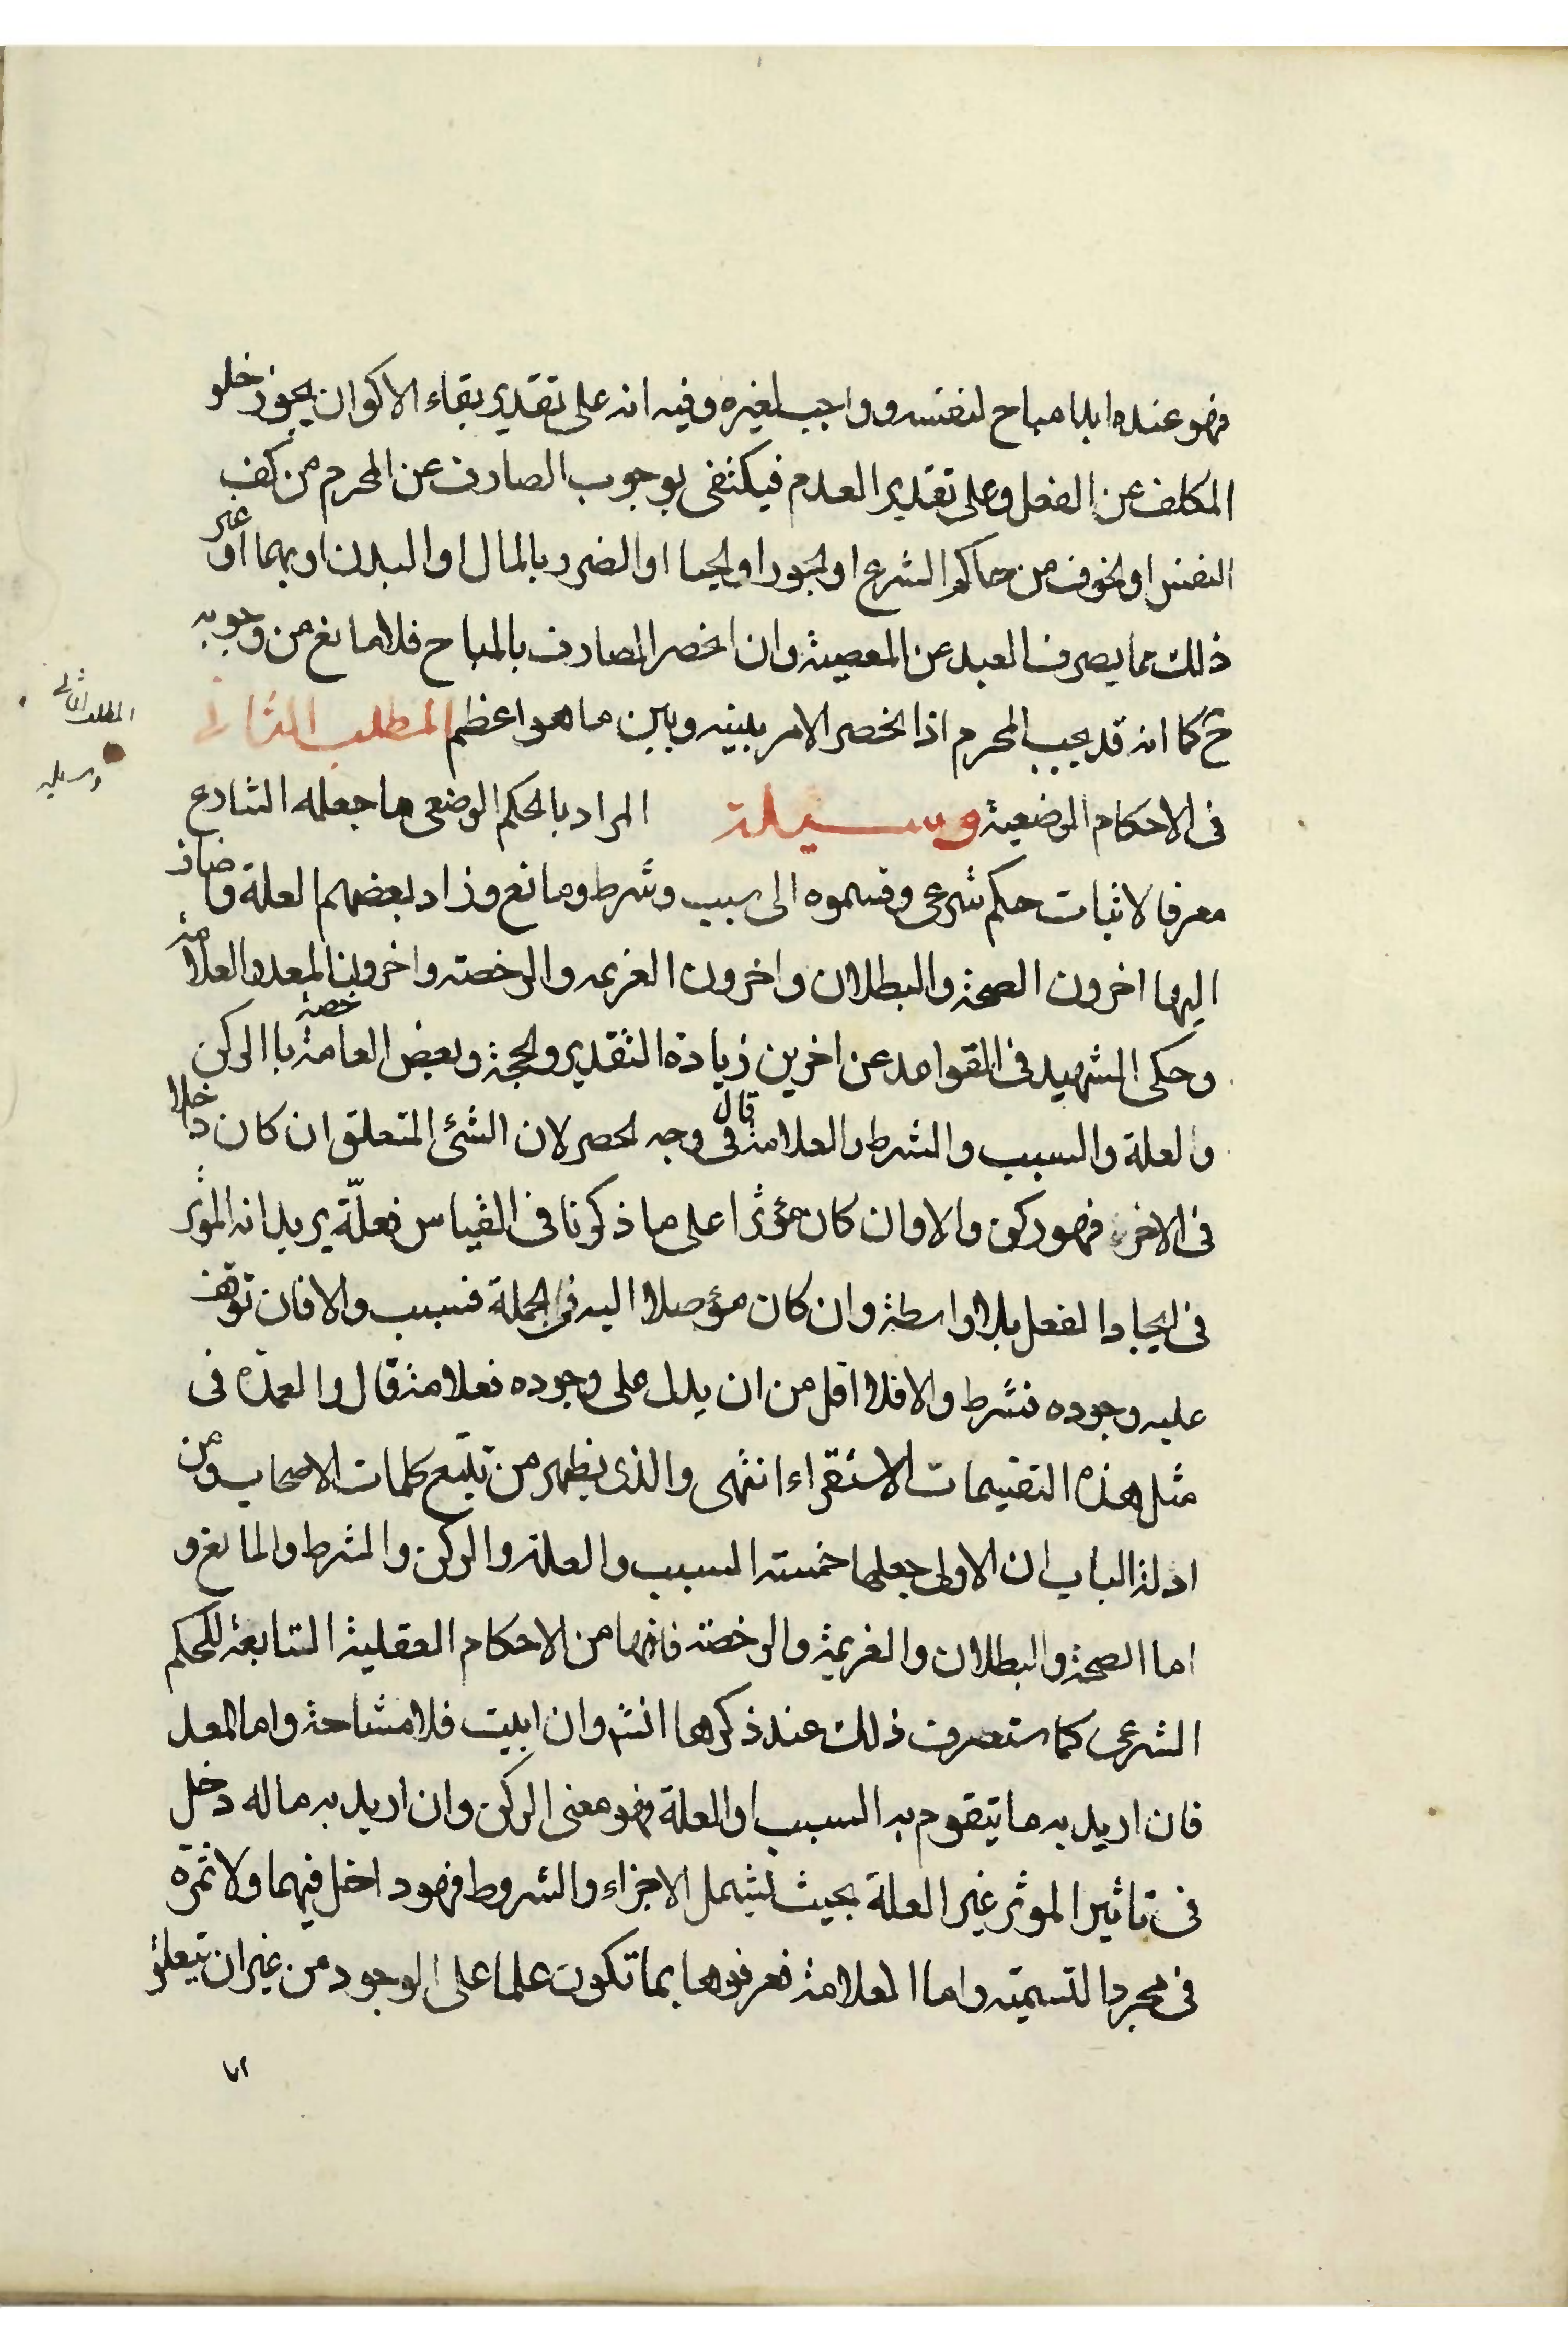 فهو عنده ابدا مباح لنفسه وواجب لغيره وفيه انه على تقدير بقاء الاكوان يجوز خلو
المكلف عن الفعل وعلى تقدير العدم فيكتفى بوجوب الصارف عن المحرم من كف
النفس او لخوف من حاكم الشرع او لجور او لحيا او الضرر بالمال او البدن او بهما او غير
ذلك مما يصرف العبد عن المعصية وان انحصر الصارف بالمباح فلا مانع من وجوبه
ح كما انه قد يجب المحرم اذا انحصر الامر بينه وبين ما هو اعظم المطلب الثانى
المطلب الثانى
فى الاحكام الوضعية وسيلة المراد بالحكم الوضعى ما جعله الشارع
وسيلة
معرفا لاثبات حكم شرعى وقسموه الى سبب وشرط ومانع وزاد بعضهم العلة واضاف
اليها اخرون الصحة والبطلان واخرون العزيمه والرخصة واخرون المعد والعلامة
وحكى الشهيد فى القواعد عن اخرين زيادة التقدير والحجة وبعض العامة خصه باالركن
والعلة والسبب والشرط والعلامة قال فى وجه لحصر لان الشئ المتعلق ان كان داخلا
فى الاخر فهو ركن والا وان كان مؤثرا على ما ذكرنا فى القياس فعلّة يريد انه الموثر
فى ايجاد الفعل بلا واسطة وان كان مؤصلا اليه فى الجملة فسبب والا فان توقف
عليه وجوده فشرط والا فلا اقل من ان يدل على وجوده فعلامة قال والعمدة فى
مثل هذه التقسيمات الاستقراء انتهى والذى يظهر من تتبع كلمات الاصحاب ومن
ادلة الباب ان الاولى جعلها خمسة السبب والعلة والركن والشرط والمانع و
اما الصحة والبطلان والعزيمة والرخصة فانها من الاحكام العقلية التابعة للحكم
الشرعى كما ستعرف ذلك عند ذكرها انشه وان ابيت فلا مشاحة واما المعد
فان اريد به ما يتقوم به السبب او العلة فهو معنى الركن وان اريد به ما له دخل
فى تاثير الموثر غير العلة بحيث يشمل الاجزاء والشروط فهو داخل فيهما ولا ثمرة
فى مجرد التسمية واما العلامة فعرفوها بما تكون علما على الوجود من غير ان يتعلق